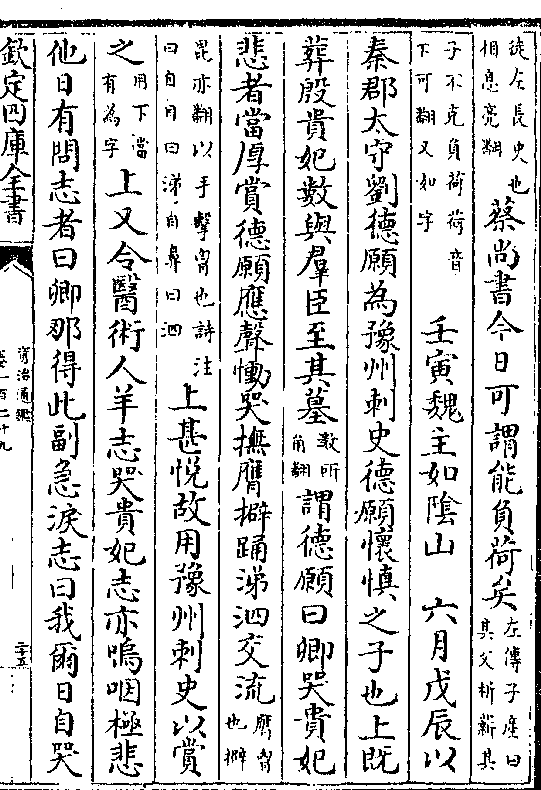 徒左長史也相息亮翻蔡尚書今日可謂能負荷矣左傳子產曰其父析薪其
子不克負荷荷音下可翻又如字 壬寅魏主如陰山 六月戊辰以
秦郡太守劉德願為豫州刺史德願懷慎之子也上既
葬殷貴妃數與羣臣至其墓數所角翻謂德願曰卿哭貴妃
悲者當厚賞德願應聲慟哭撫膺擗踊涕泗交流膺胷也擗
毘亦翻以手擊胷也詩注曰自目曰涕自鼻曰泗上甚悅故用豫州刺史以賞
之用下當有為字上又令醫術人羊志哭貴妃志亦嗚咽極悲
他日有問志者曰卿那得此副急淚志曰我爾日自哭
欽定四庫全書
資治通鑑
卷一百二十九
二十五